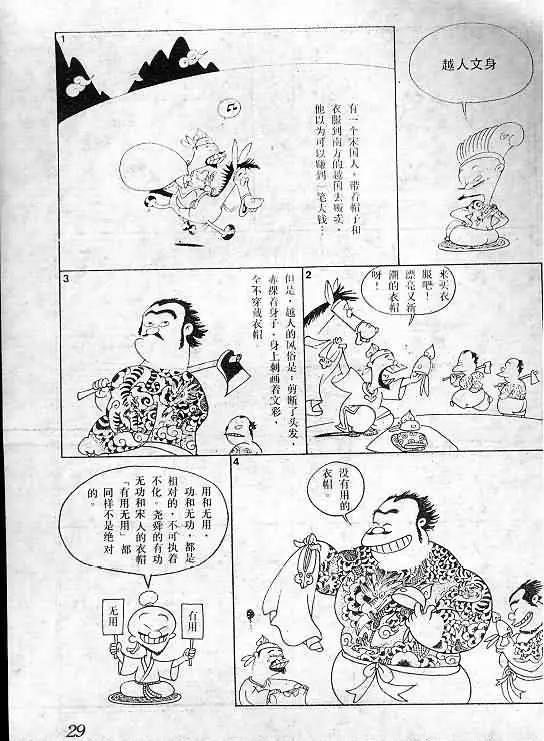 越人文身
1
有一个宋国人，带着帽子和
衣服到南方的越国去贩卖，
他以为可以赚到一笔大钱…
2
来买衣
服吧！
漂亮又新
潮的衣帽
呀！
3
但是，越人的风俗是：剪断了头发，
赤裸着身子，身上刺画着文彩，
全不穿戴衣帽。
4
没有用的
衣帽。
用和无用，
功和无功，都是
相对的，不可执着
不化。尧舜的有功
无功和宋人的衣帽
「有用无用」都
同样不是绝对
的。
无用
有用
29